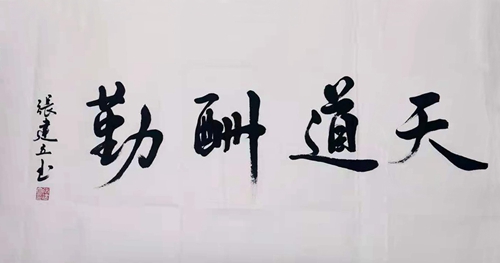 天道酬勤
張建立书